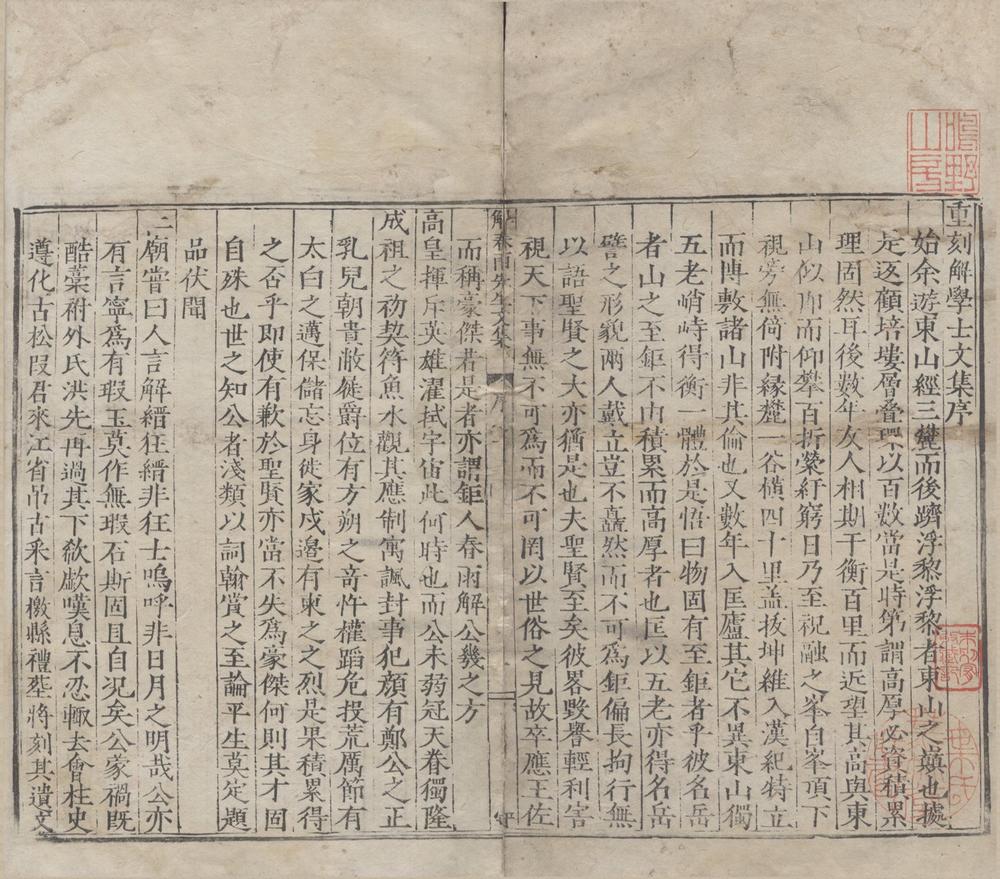 重刻解學士文集序
始余遊東山經三麓而後躋浮黎浮黎者東山之巔也據
是返顧培塿層疊環以百數當是時第謂高厚必資積累
理固然耳後數年友人相期于衡百里而近望其高與東
山似即而仰攀百折縈紆窮日乃至祝融之峯自峯頂下
視旁無倚附緣麓一谷橫四十里盖拔坤維入漢紀特立
而博敷諸山非其倫也又數年入匡廬其它不異東山獨
五老峭峙得衡一體於是悟曰物固有至鉅者乎彼名岳
者山之至鉅不由積累而高厚者也匡以五老亦得名岳
譬之形貌兩人戴立豈不矗然而不可為鉅偏長拘行無
以語聖賢之大亦猶是也夫聖賢至矣彼畧夥譽輕利害
視天下事無不可為而不可罔以世俗之見故卒應王佐
解春雨先生文集 序
而稱豪傑若是者亦謂鉅人春雨解公幾之方
高皇揮斥英雄濯拭宇宙此何時也而公未弱冠天眷獨隆
成祖之初契符魚水觀其應制寓諷封事犯顏有鄭公之正
乳兒朝貴敝屣爵位有方朔之奇忤權蹈危投荒厲節有
太白之邁保儲忘身徙家戍邊有柬之之烈是果積累得
之否乎即使有歉於聖賢亦當不失為豪傑何則其才固
自殊也世之知公者淺類以詞翰賞之至論平生莫定題
品伏聞
仁廟嘗曰人言解縉狂縉非狂士嗚呼非日月之明哉公亦
有言寧為有瑕玉莫作無瑕石斯固且自况矣公蒙禍既
酷藁祔外氏洪先再過其下欷歔嘆息不忍輙去會柱史
遵化古松段君來江省吊古采言檄縣禮塟將刻其遺文